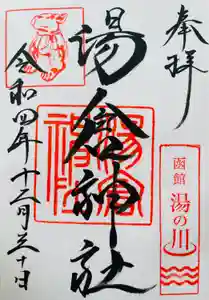 奉拝
湯倉神社
令和四年十二月三十日
函館
湯の川
湯倉神社